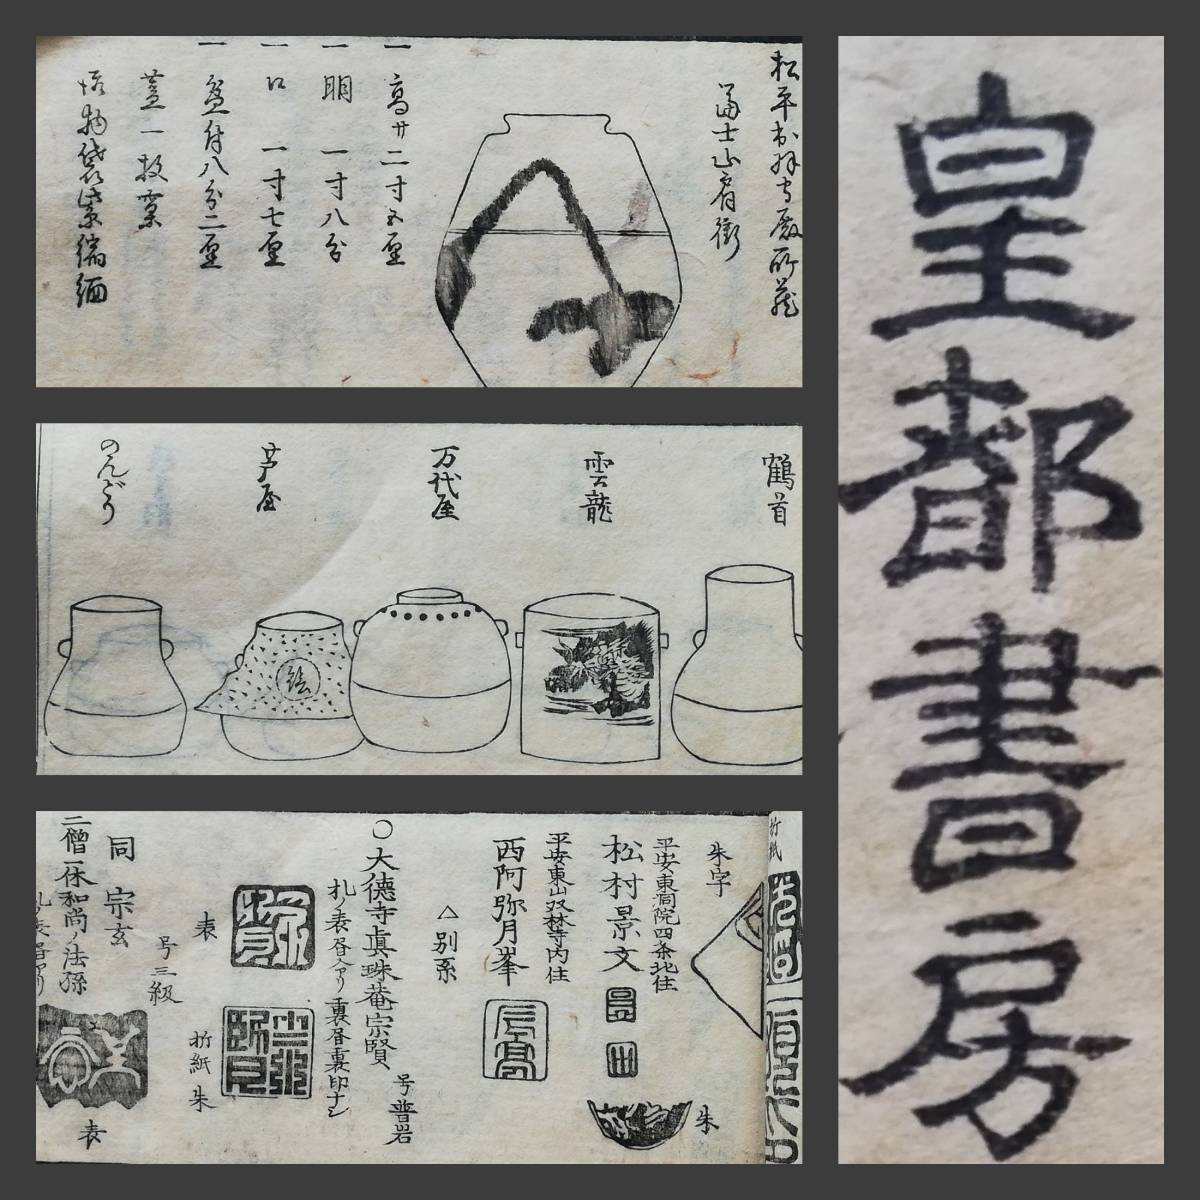 松平出羽守殿所蔵
冨士山肩衝
一高サ二寸五厘
一胴一寸八分
一口一寸七厘
一盆付八分二厘
蓋一枚
鶴首
雲龍
万代屋
芦屋
絵
のんどう
折紙
朱字
平安東洞院四条北住
松村景文
朱
平安東山双林寺内住
西阿弥月峯
△別系
○大徳寺眞珠菴宗賢
号普岩
札ノ表呑人アリ裏呑裏印ナシ
表
折紙朱
号三級
同宗玄
二僧一休和尚ノ法孫
表
皇都書房